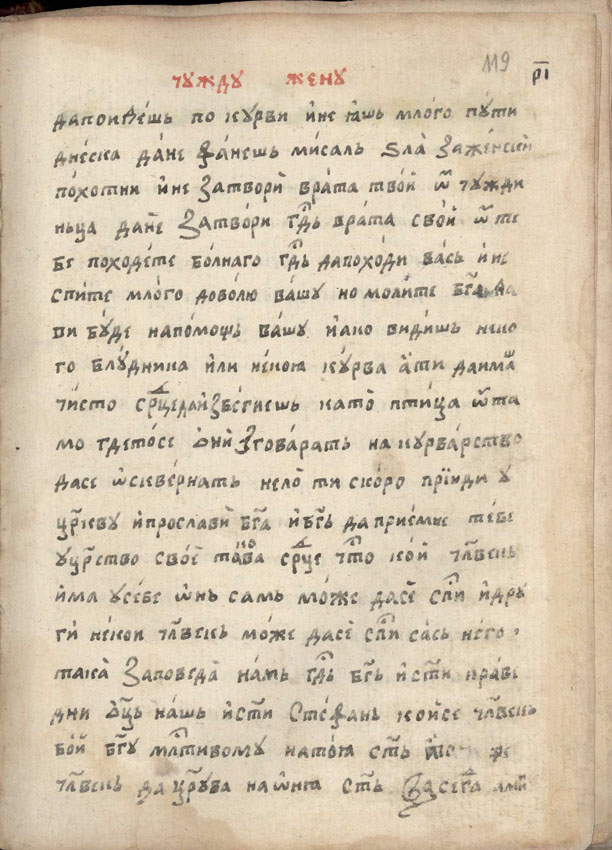 119
чꙋждꙋ женꙋ
рі
дапоидешь по кꙋрви ине ꙗшь млого пꙋти
днеска дане фанешь мисаль ѕла заженскїи
похотни ине затвори врата твои ѿ чꙋжди
ньца дане затвори гдⷭь врата свои ѿ те
бе походете болнаго гдⷭь дапоходи вась ине
спите млого доволю вашꙋ но молите бг҃а
ви бꙋде напомощь вашꙋ иако видишь неко
го блꙋдника или некою кꙋрва ати даима
чисто срⷣце даизбегнешь като птица ѿта
мо гдетосе ѡни зговарать на кꙋрварство
дасе ѡсквернать нело ти скоро прїиди ꙋ
црⷦ҇еву ипрослави бг҃а ибг҃ь даприемне тебе
ꙋцрⷭтво свое такова срⷣце что кои чл҃векь
има ꙋсебе ѡнь самь може дасе спⷭи идрꙋ
ги некои чл҃векь може дасе спⷭи сась него
така заповеда намь гдⷭь бг҃ь исти праве
дни ѡц҃ь нашь истⷭи стефань коисе чл҃векь
бои бг҃ꙋ млⷭтивомꙋ натоѧ стⷭь
чл҃векь да црⷭꙋва на ѡнїа стⷭь засега ами